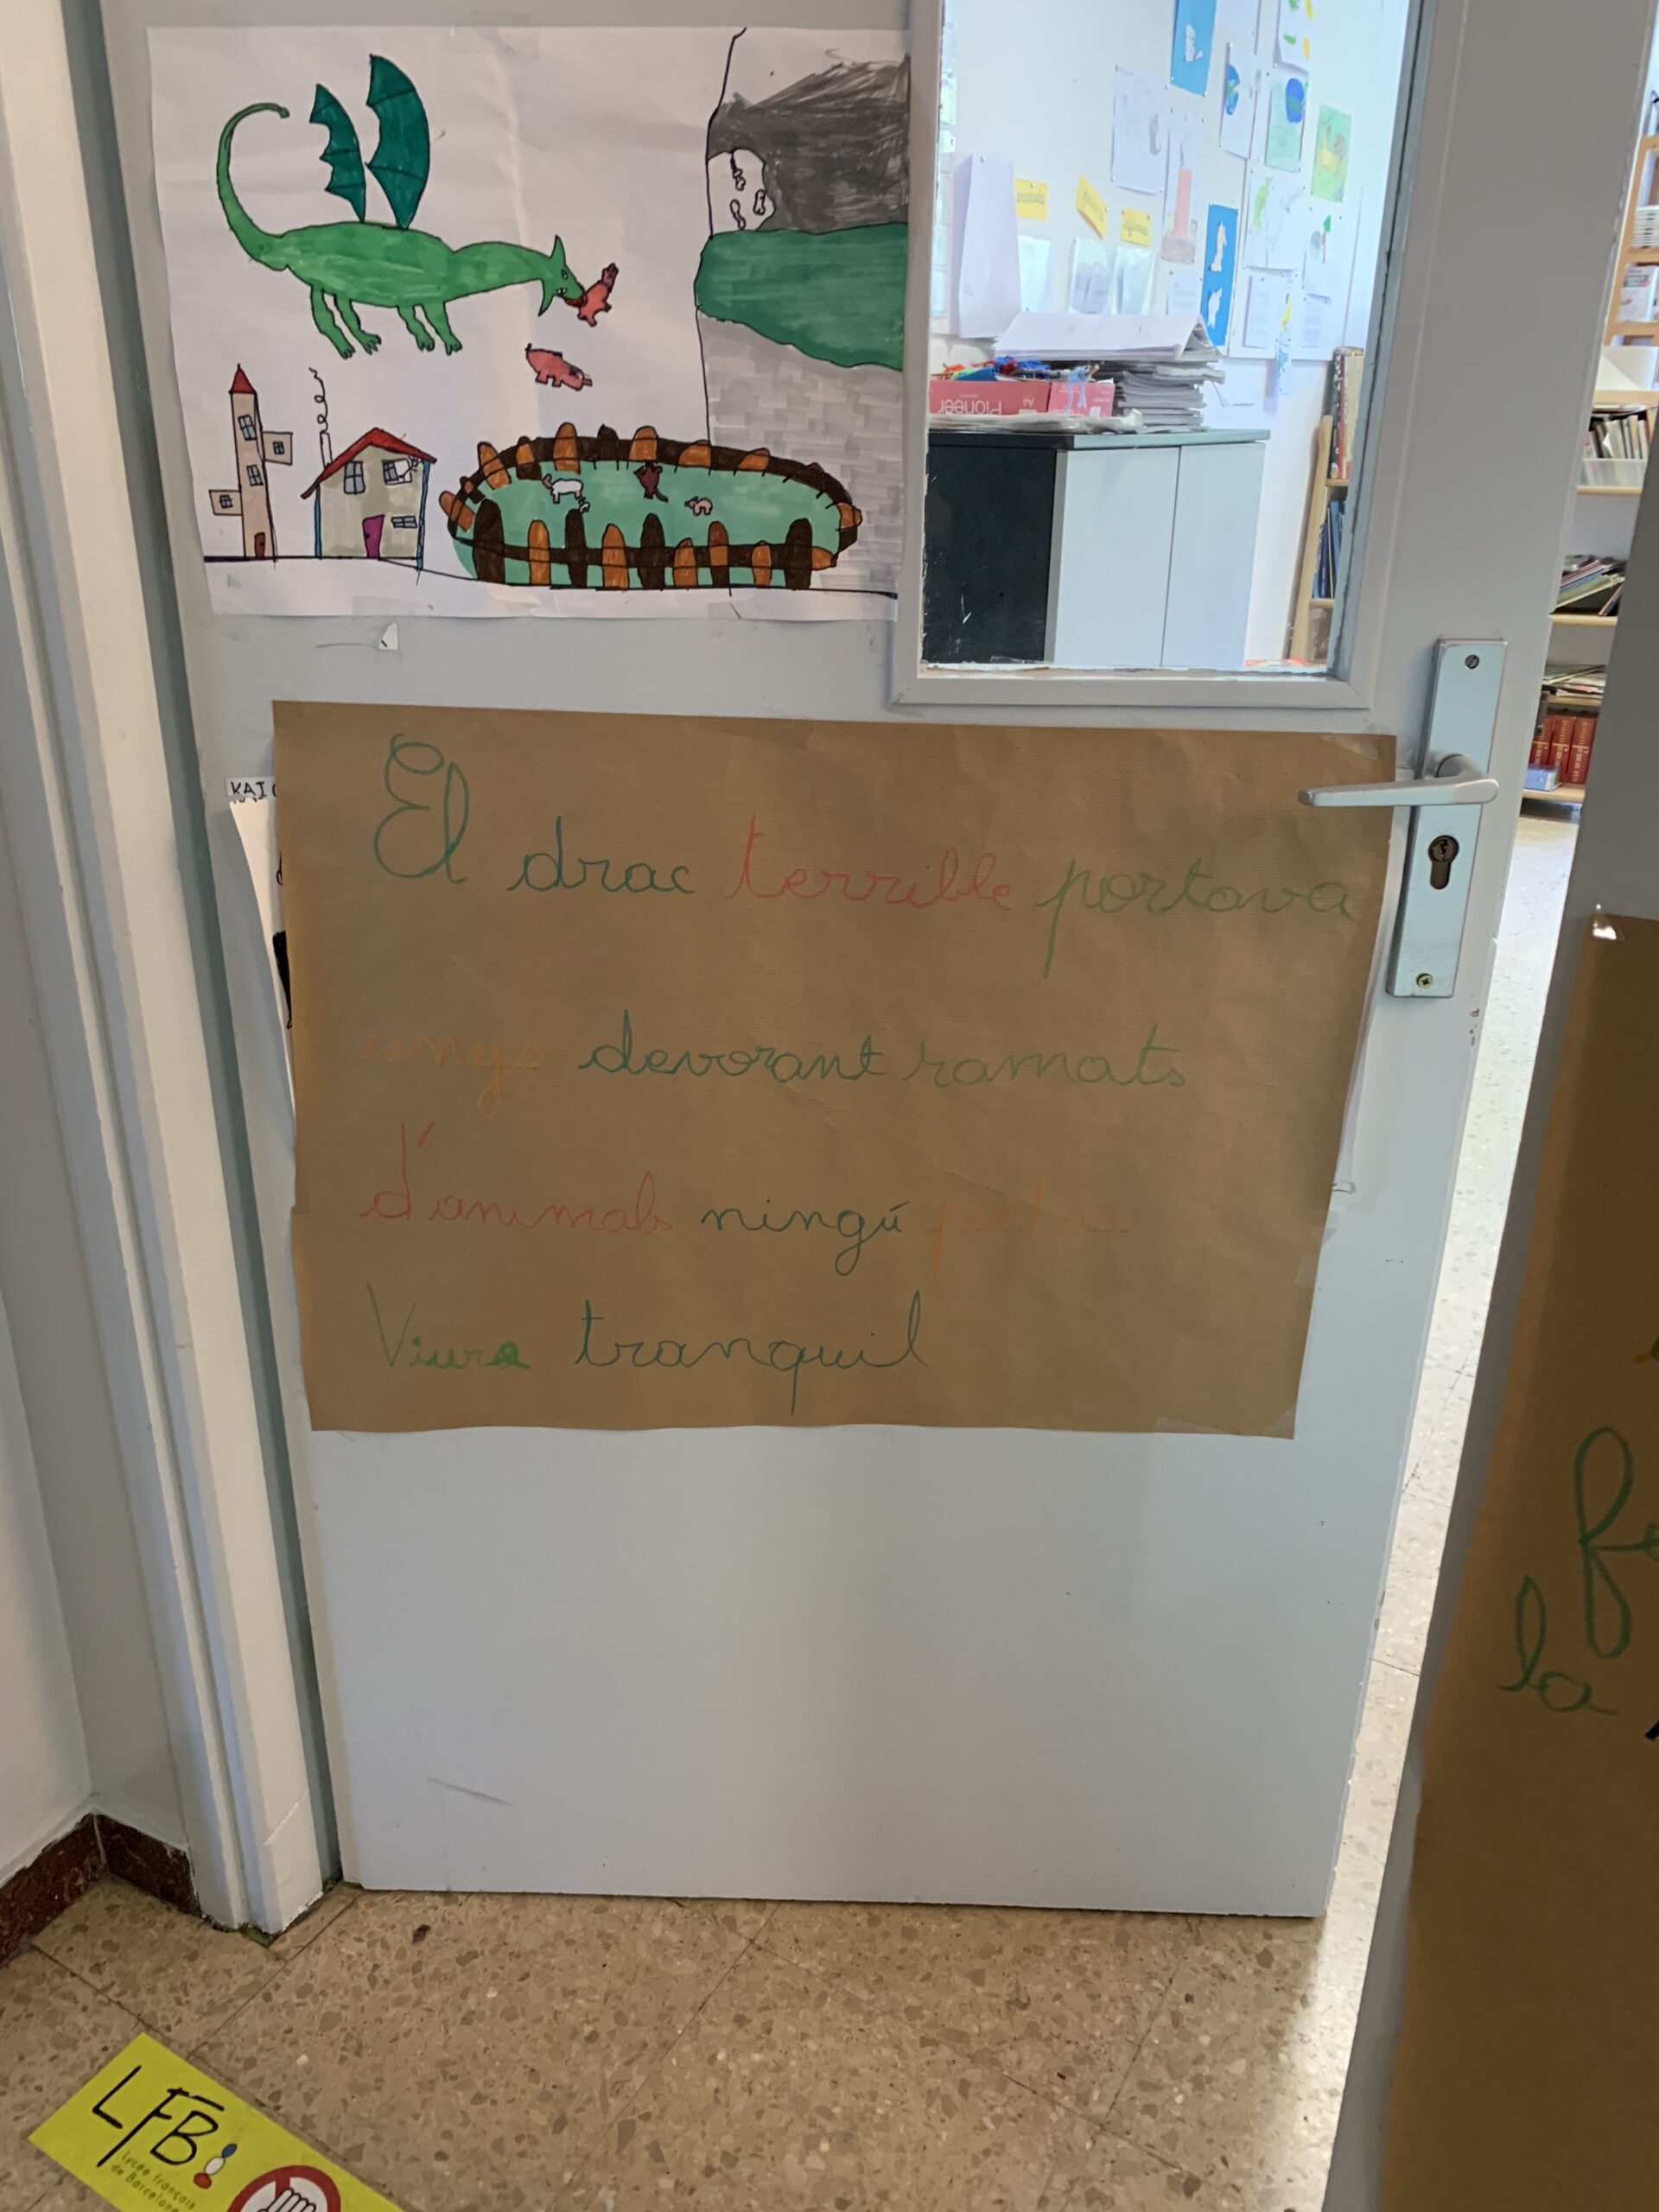 Pioneer
KAI
El drac terrible portava
anys devorant ramats
d'animals ningú podia
Viure tranquil
la
LFB
Lycée français
de Barcelone